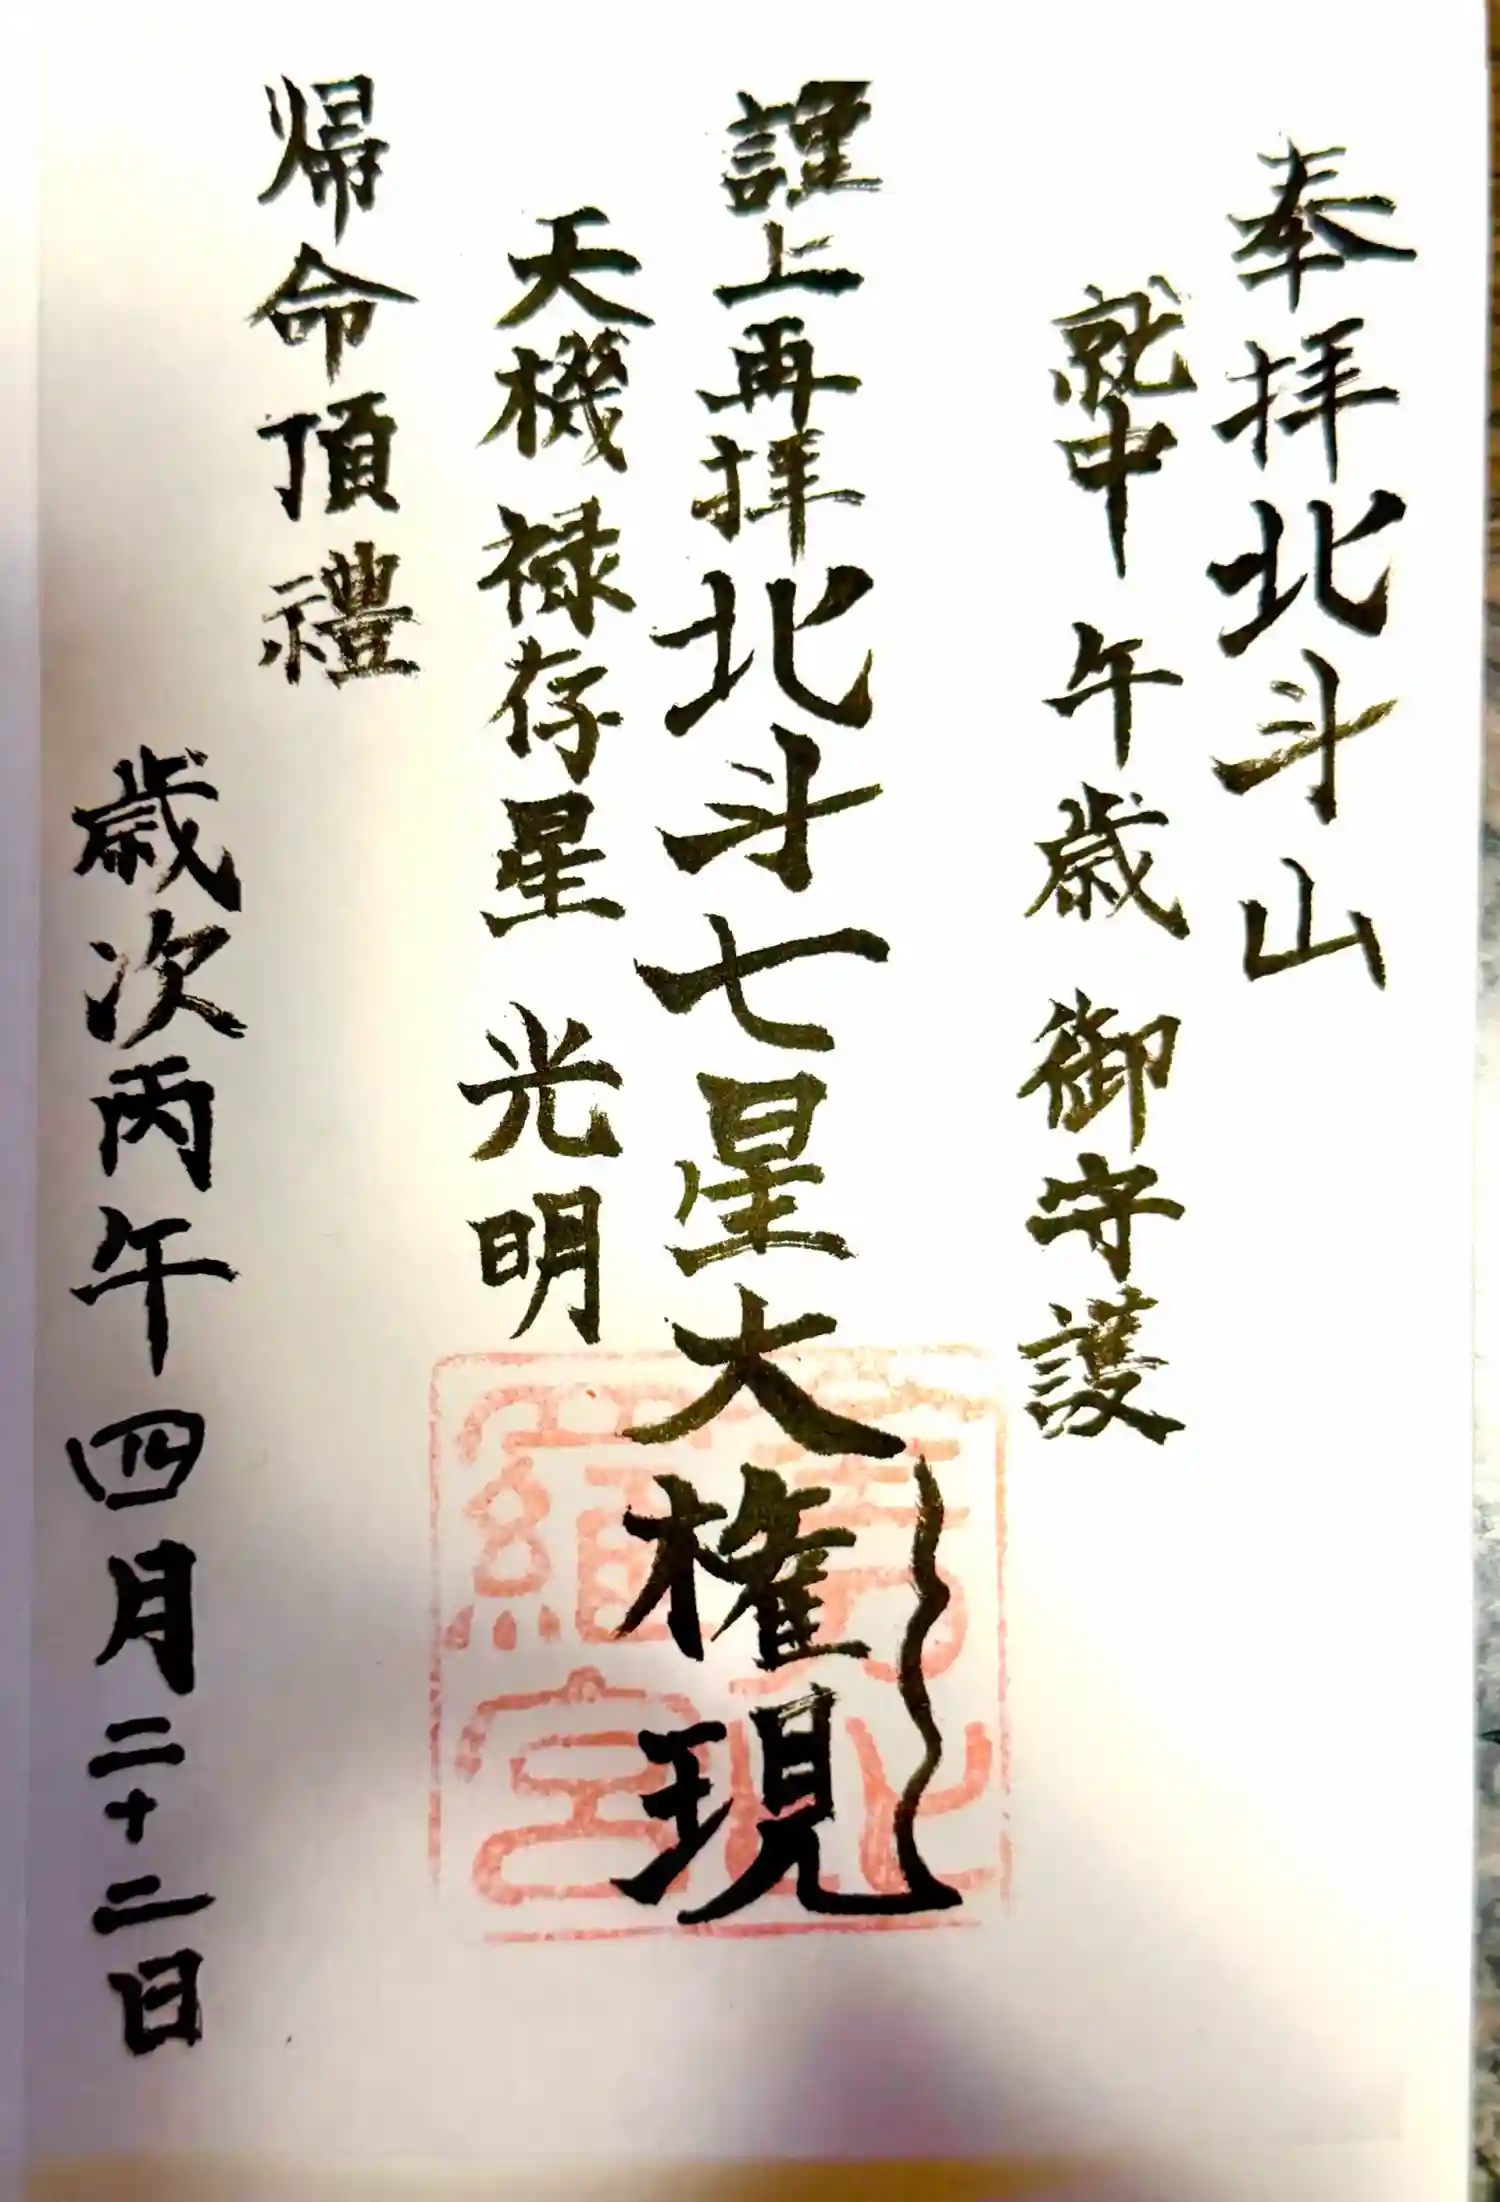 奉拝北斗山
就中 午歳 御守護
謹上再拝北斗七星大権現
天機 禄存星 光明
帰命頂禮
歳次丙午四月二十二日